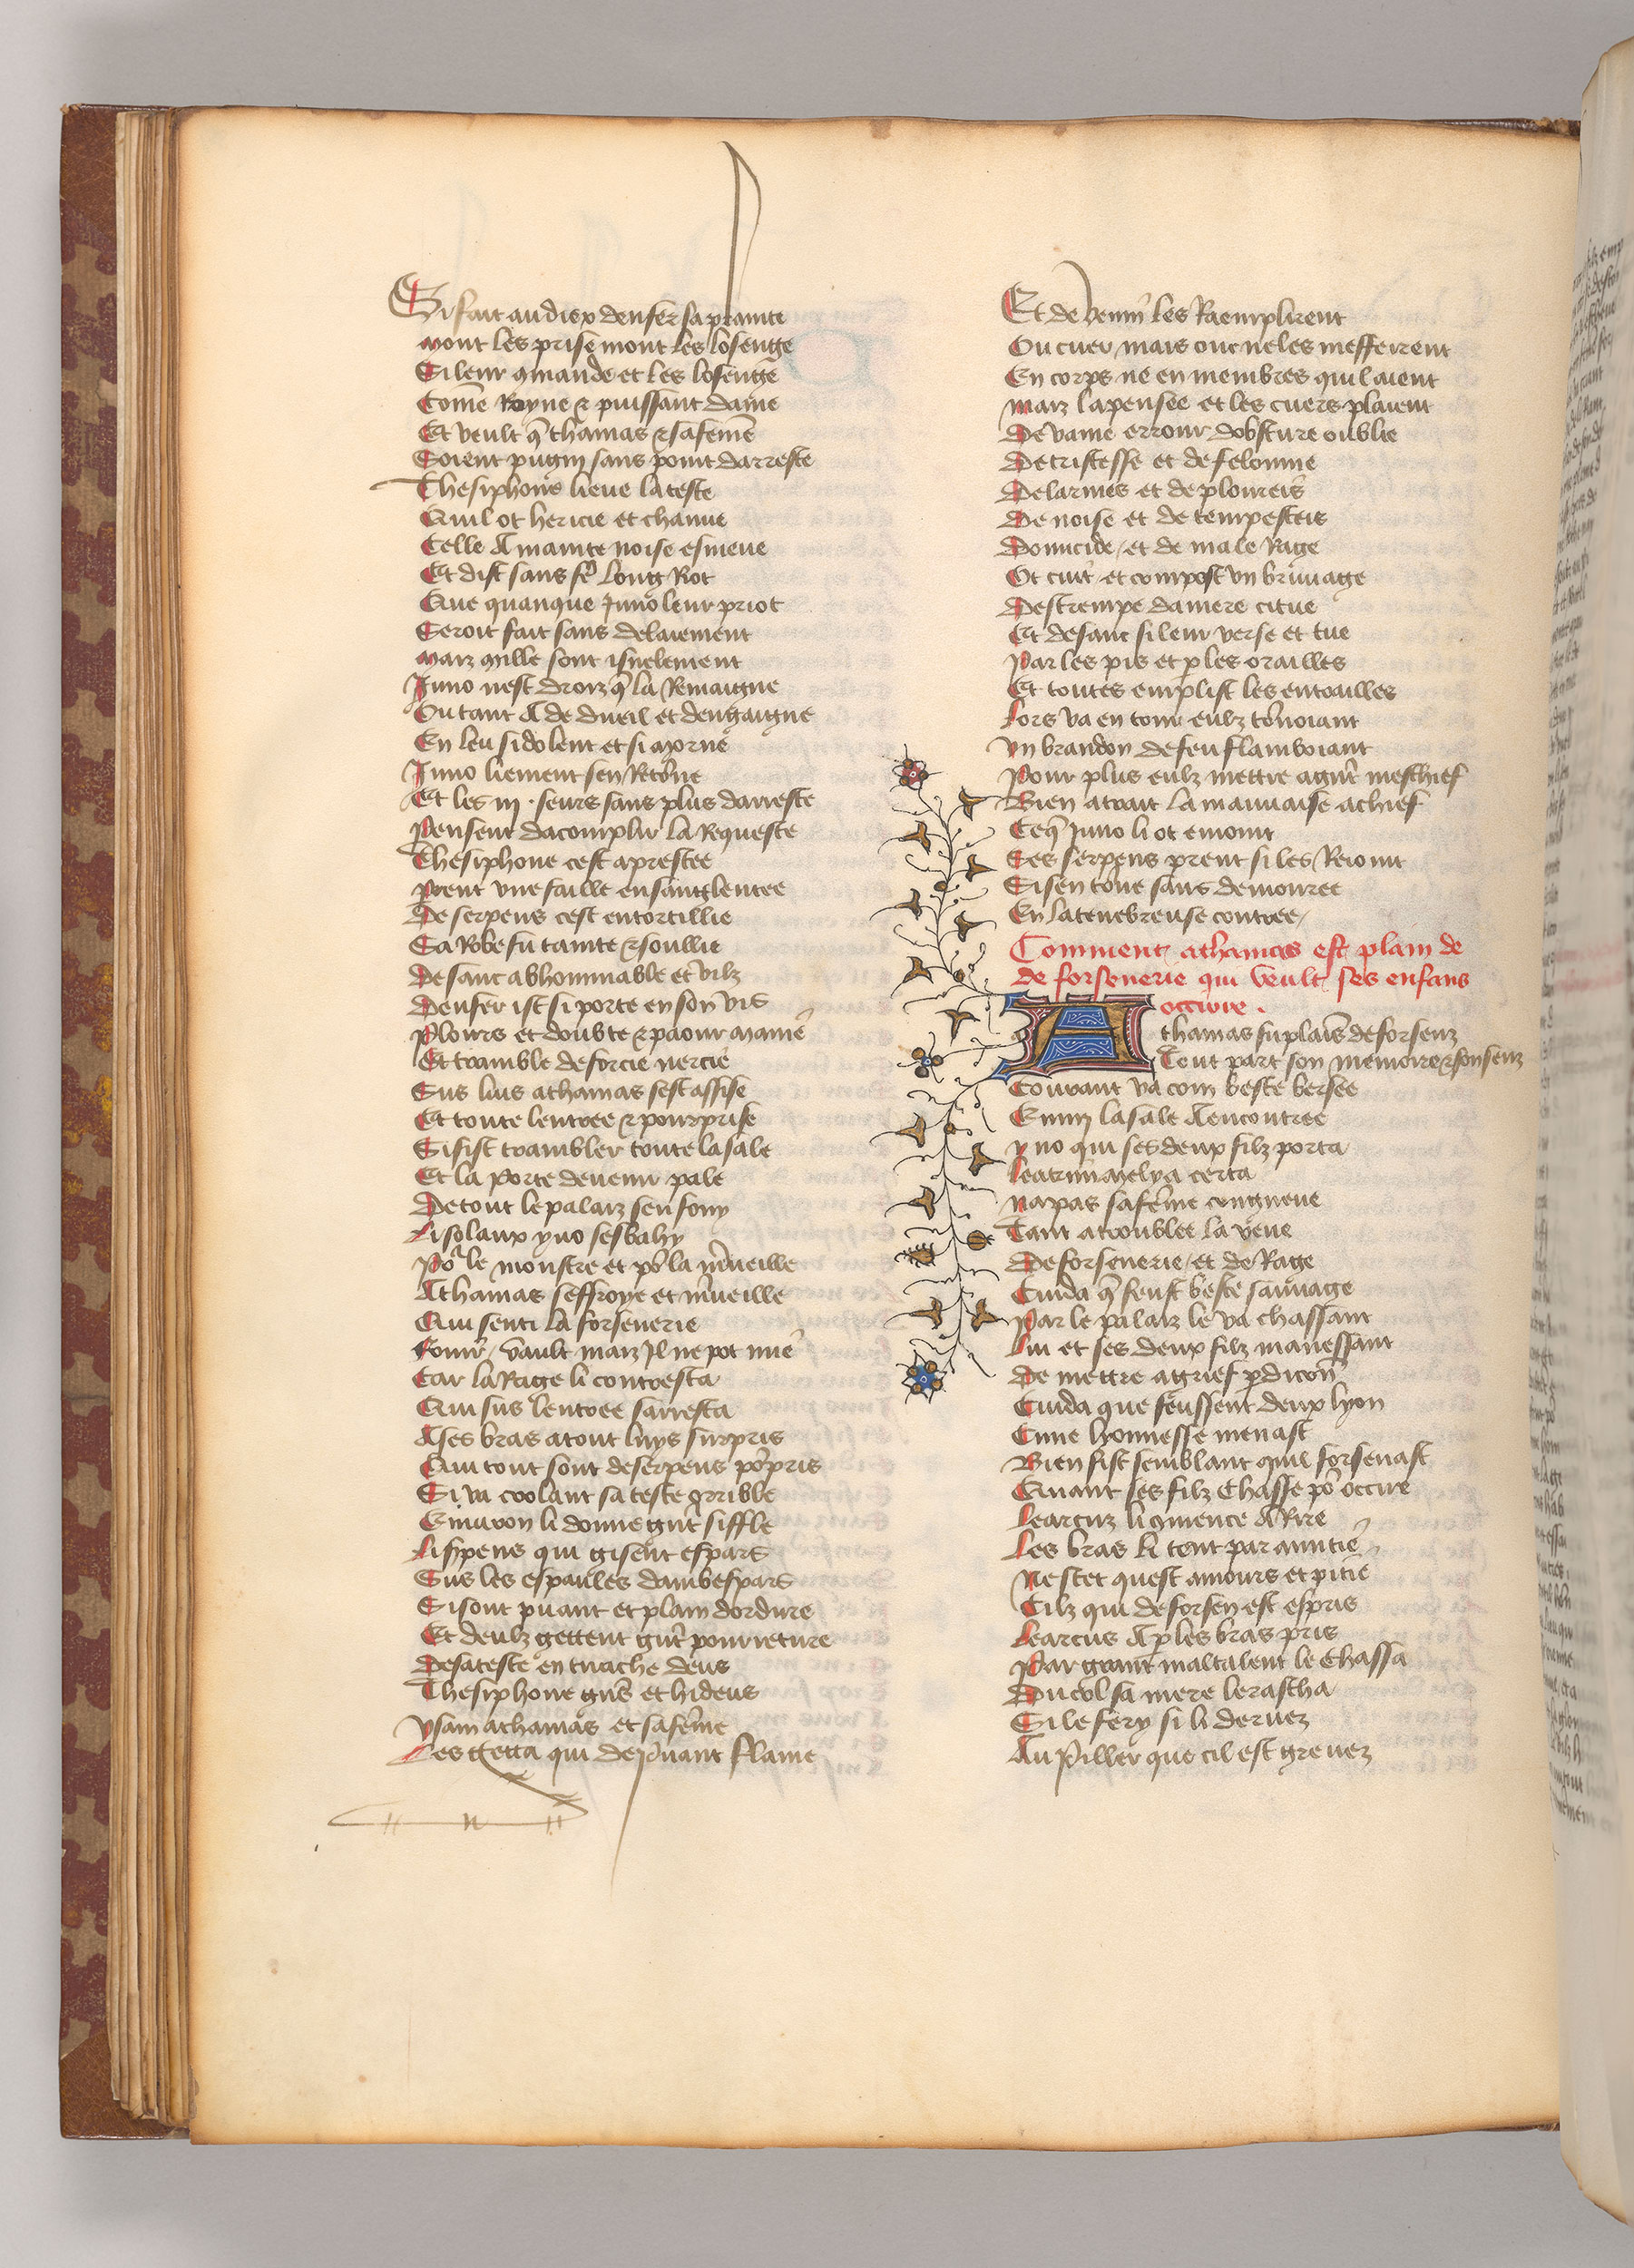 Si fait au diex denfer sa plainte
Mont les prise mont les losenge
Si leur ꝯmande et les losenge
Com̄e Royne ⁊ puissant dame
Et veult q̄ thamas ⁊ safem̄e
Soient pugni sans point darreste
Thesiphone lieue la teste
Quil ot hericie et chanue
Celle A mainte noise esmeue
Et dist sans fẽ long Rot
Que quanque Juno leur priot
Seroit fait sans delaiement
Maiz quille sont isnelement
Juno nest droiz q̄ la Remaigne
Ou tant A de dueil et dengaigne
En leu si dolent et si morne
Juno liement sen Retône
Et les iij. seurs sans plus darreste
Pensent dacomplir la Requeste
Thesiphone cest aprestee
Prent vne faille ensanglentee
De serpens cest entortillie
Sa Robe fu tainte ⁊ soullie
De sanc abhominable et vilz
Denfer ist si porte en son vis
Plours et doubte ⁊ paour mainẽ
Et tramble deforcie nercie
Sus luis athamas sest assise
Et toute lentree ⁊ pourprise
Si fist trambler toute la sale
Et la porte deuenir pale
De tout le palaiz sen fouy
Li solaux yno sesbahy
Po᷑ le monstre et po᷑ la m̃ueille
Athamas seffroye et m̃ueille
Qui senti la forsenerie
Fouir vault maiz Jl ne pot mie
Car la Rage li contresta
Qui sus lentree sarresta
A ses bras a tout luys surpris
Qui tout sont de serpens po᷑pris
Si va croolant sa teste orrible
Enuiron li donne gñt siffle
Li s̃pens qui gisent espars
Sus les espaules dambespars
Si sont puant et plain dordure
Et deulz gettent gñt pourreture
De sa teste en traiche deus
Thesiphone gñs et hideus
Vsam athamas et safem̃e
Les getta qui de puant flame
Et de venin les Raemplirent
Ou cuer mais onc ne les mefferrent
En corps ne en membres quil aient
Maiz la pensee et les cuers plaient
De vaine errour dobscure oublie
De tristesse et de felonnie
De larmes et de ploureis
De noise et de tempesteis
Domicide et de male Rage
Ot cuit et compost vn bruuage
Destrempe damere cicue
Et de sanc si leur verse et tue
Par les pis et ꝑ les orailles
Et toutes emplist les entrailles
Lors va en tour eulz tornoiant
Vn brandon de feu flamboiant
Pour plus eulz mettre a gñt meschief
Bien a trait la mauuaise a chief
Ce q̄ Juno li ot enioint
Ses serpens prent si les Reioint
Si sen tône sans demouree
En la tenebreuse contree
Comment athamas est plain de
de forsenerie qui veult ses enfans
occirre.
Athamas fu plais de forsenz
Tout part son memoire ⁊ son senz
Courant va com beste bersee
Enmy la sale A encontree
Yno qui ses deux filz porta
Learcum Melya certa
Na pas sa fem̃e congneue
Tant a troublee la veue
De forsenerie et de Rage
Cuida q̄ feust beste sauuage
Par le palaiz le va chassant
Lui et ses deux filz manessant
De mettre a grief ꝑdicion
Cuida que feussent deux lyon
Cune lyonnesse menast
Bien fist semblant quil forsenast
Quant ses filz chasse po᷑ occire
Learcuz li ꝯmence A Rire
Les bras li tent par amitie
Ne scet quest amours et pitie
Cilz qui de forsen est espris
Learcus A ꝑ les bras pris
Par grant maltalent le chassa
Du col sa mere lerascha
Si le fery si li deruez
Au piller que cil est greuez